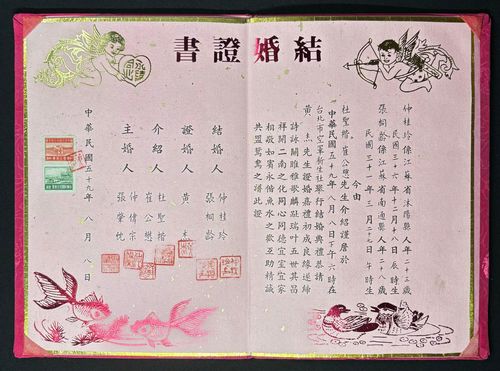 結婚證書
仲桂玲係江蘇省沭陽縣人年二十三歲
民國三十六年十二月十八日辰時生
張桐齡係江蘇省南通縣人年二十八歲
民國三十一年三月二十三日午時生
今由
杜聖楷崔公懋先生介紹謹詹於
中華民國五十九年八月八日下午六時在
台北市空軍新生社舉行結婚典禮恭請
黃杰先生證婚嘉禮初成良緣遂締
詩詠關雎雅歌麟趾瑞叶五世其昌
祥開二南之化同心同德宜室宜家
相敬如賓永偕魚水之歡互助精誠
共盟鴛鴦之誓此證
結婚人 仲桂玲
張桐齡
證婚人 黃杰
介紹人 杜聖楷
崔公懋
主婚人 仲傳宗
張肇忱
中華民國五十九年八月八日